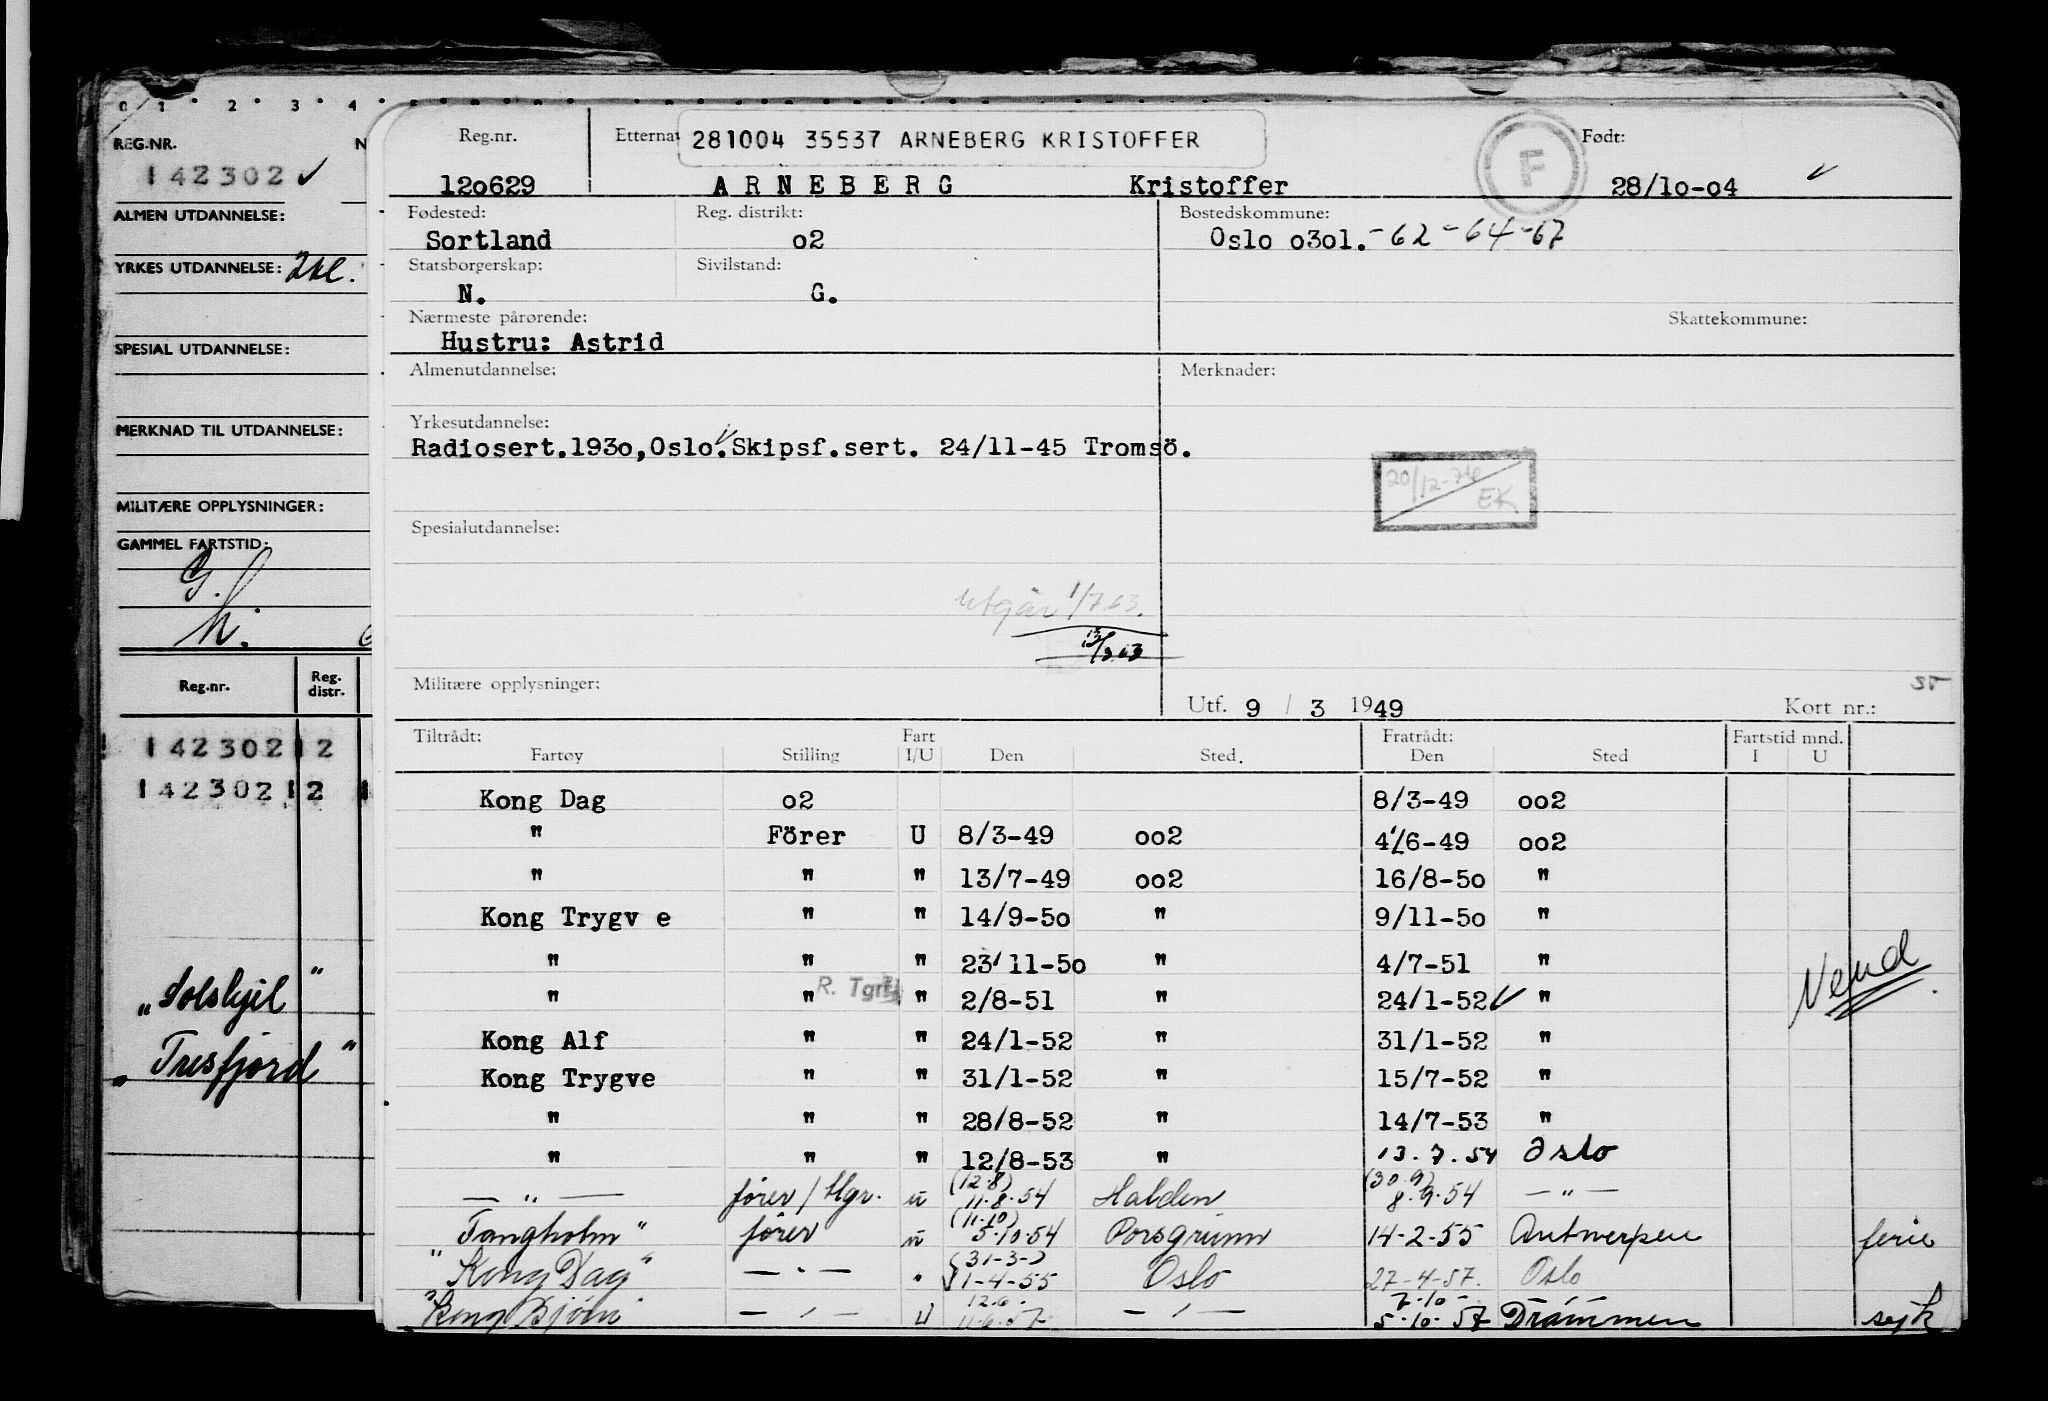 0 1 2 3 4
REG.NR. N
142302 ✓
ALMEN UTDANNELSE:
YRKES UTDANNELSE:
SPESIAL UTDANNELSE:
MERKNAD TIL UTDANNELSE:
MILITÆRE OPPLYSNINGER:
GAMMEL FARTSTID:
G.
Reg.nr. Reg. distr.
142302 12
142302 12
"Solskjel"
"Tresfjord"
Reg.nr. Etternav 281004 35537 ARNEBERG KRISTOFFER F Født:
12o629 ARNEBERG Kristoffer 28/1o-o4 ✓
Fødested: Reg. distrikt: Bostedskommune:
Sortland o2 Oslo o3o1.-62-64-67
Statsborgerskap: Sivilstand:
N. G.
Nærmeste pårørende: Skattekommune:
Hustru: Astrid
Almenutdannelse: Merknader:
Yrkesutdannelse:
Radiosert.193o,Oslo.Skipsf.sert. 24/11-45 Tromsö.
20/12-76 EK
Spesialutdannelse:
Utgår 1/7 63.
13/3 63
Militære opplysninger: Utf. 9 / 3 1949 Kort nr.:
Tiltrådt: Fart Fratrådt: Fartstid mnd.
Fartøy Stilling I/U Den Sted. Den Sted I U
Kong Dag o2 8/3-49 oo2
" Förer U 8/3-49 oo2 4/6-49 oo2
" " " 13/7-49 oo2 16/8-5o "
Kong Trygv e " " 14/9-5o " 9/11-5o "
" " " 23/11-5o " 4/7-51 "
" " R. Tgr. " 2/8-51 " 24/1-52 ✓ "
Kong Alf " " 24/1-52 " 31/1-52 "
Kong Trygve " " 31/1-52 " 15/7-52 "
" " " 28/8-52 " 14/7-53 "
" " " 12/8-53 " 13.7.54 Oslo
— " — fører/tlgr. u (12.8) 11.8.54 Halden (30.9) 8.9.54 — " —
"Tangholm" fører u (11.10) 5.10.54 Porsgrunn 14-2-55 Antwerpen ferie
"Kong Dag" — " — " (31-3-) 1-4-55 Oslo 27-4-57. Oslo
"Kong Bjørn" — " — U 12.6. 11.6.57 — " — 7-10- 5-10-57 Drammen syk